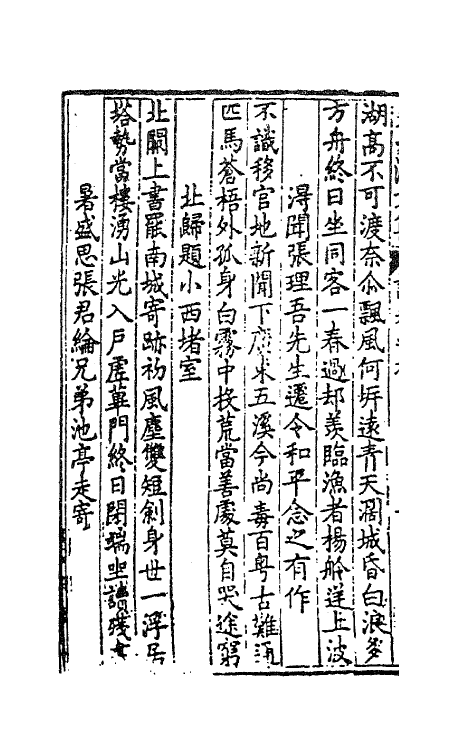 湖高不可渡奈尒飄風何坼遠青天濶城昏白浪多
方舟終日坐同客一春過却羡臨漁者楊舲逆上波
淂聞張理吾先生遷令和平念之有作
不識移官地新聞下廣東五溪今尚毒百粤古難通
匹馬蒼梧外孤身白霧中投荒當善處莫自哭途窮
北歸題小西堵室
北闕上書罷南城寄跡初風塵雙短劍身世一浮居
塔勢當樓湧山光入戶虗蓽門終日閉端坐讀殘書
暑盛思張君綸兄弟池亭走寄